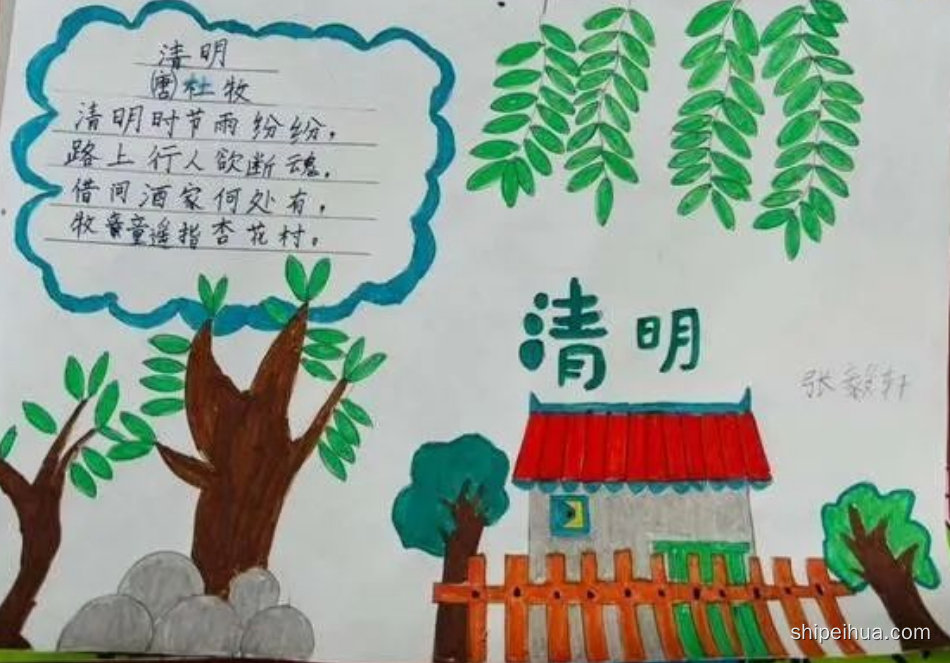 清明
(唐)杜牧
清明时节雨纷纷,
路上行人欲断魂。
借问酒家何处有,
牧童遥指杏花村。
清明
张轩
shipeihua.com